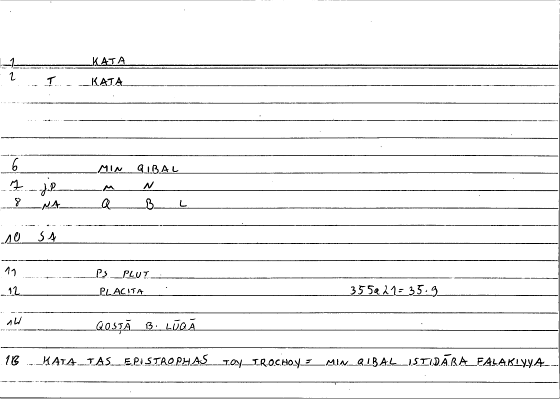 1 KATA
2 T KATA
6 MIN QIBAL
7 JP M N
8 NA Q B L
10 SA
11 PS PLUT
12 PLACITA 355a21=35.9
14 QOSṬĀ B. LŪQĀ
18 KATA TAS EPISTROPHAS TOY TROCHOY = MIN QIBAL ISTIDĀRA FALAKIYYA